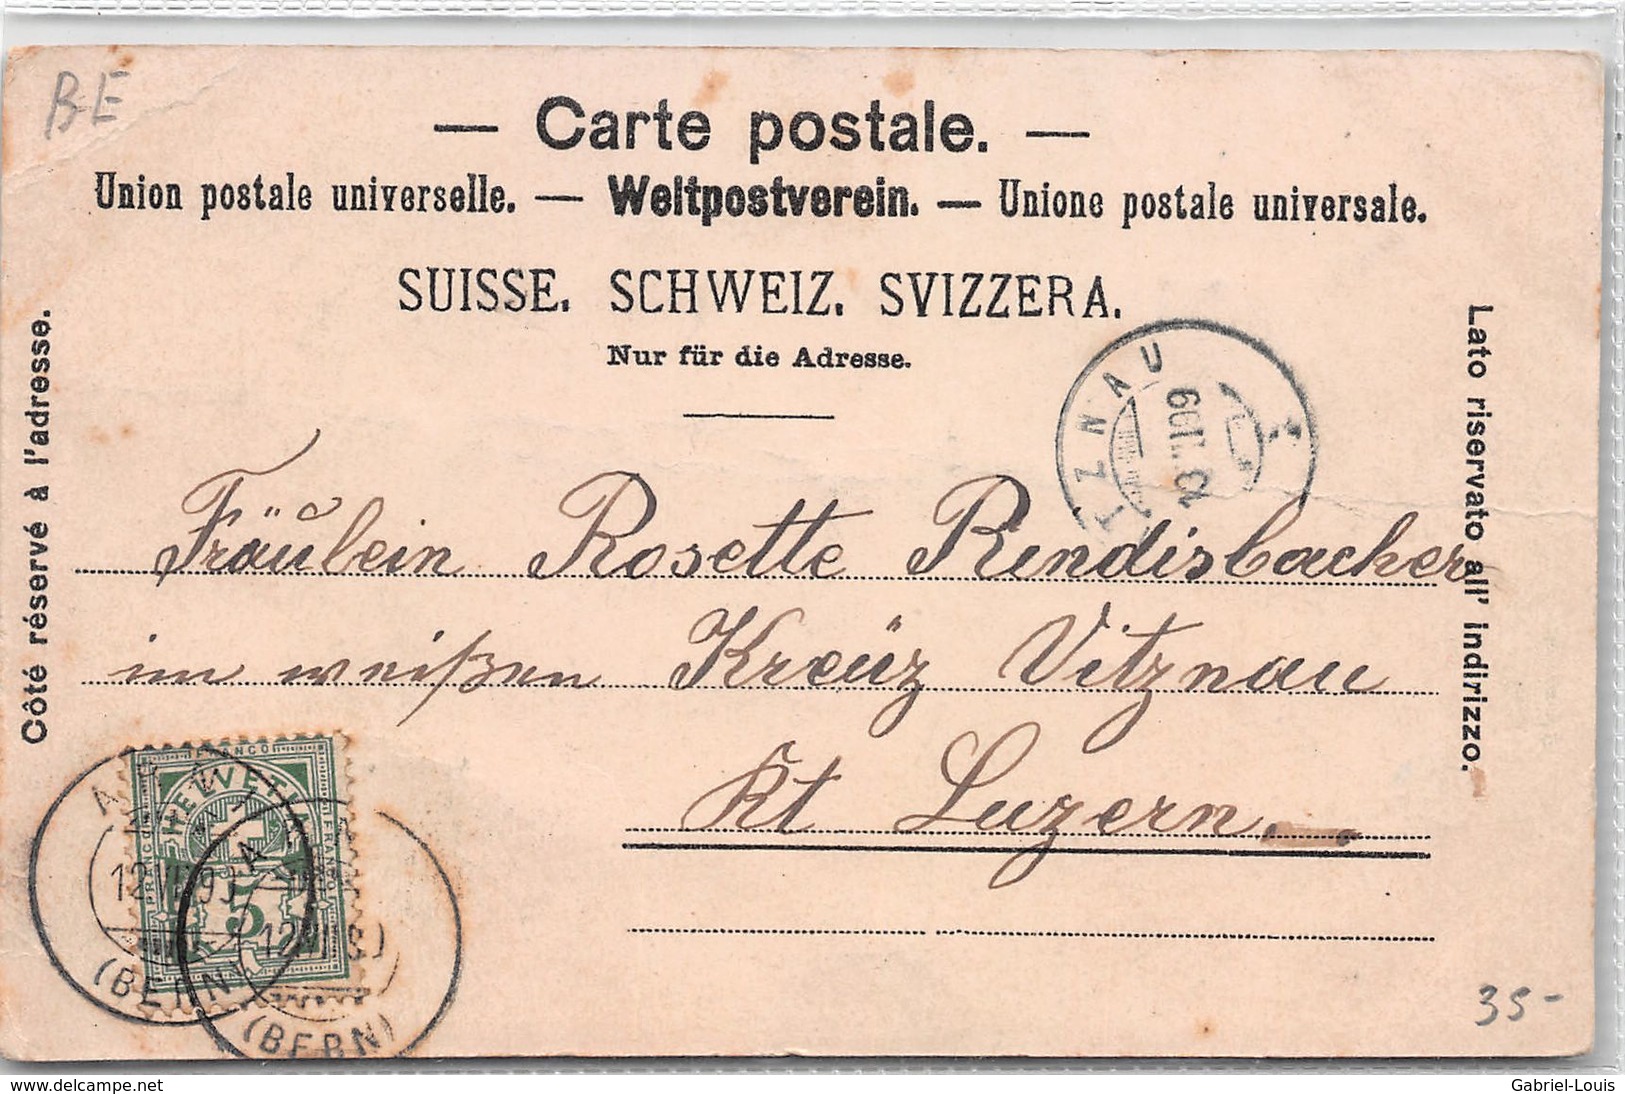 BE
— Carte postale. —
Union postale universelle. — Weltpostverein. — Unione postale universale.
SUISSE. SCHWEIZ. SVIZZERA.
Nur für die Adresse.
Côté réservé à l'adresse.
Lato riservato all' indirizzo.
TZNAU
Fräulein Rosette Rindisbacher
im weißen Kreuz Vitznau
Kt Luzern.
FRANCO
HELVETIA
FRANCO
5
12.VII.99
(BERN)
(BERN)
35-
delcampe.net
Gabriel-Louis